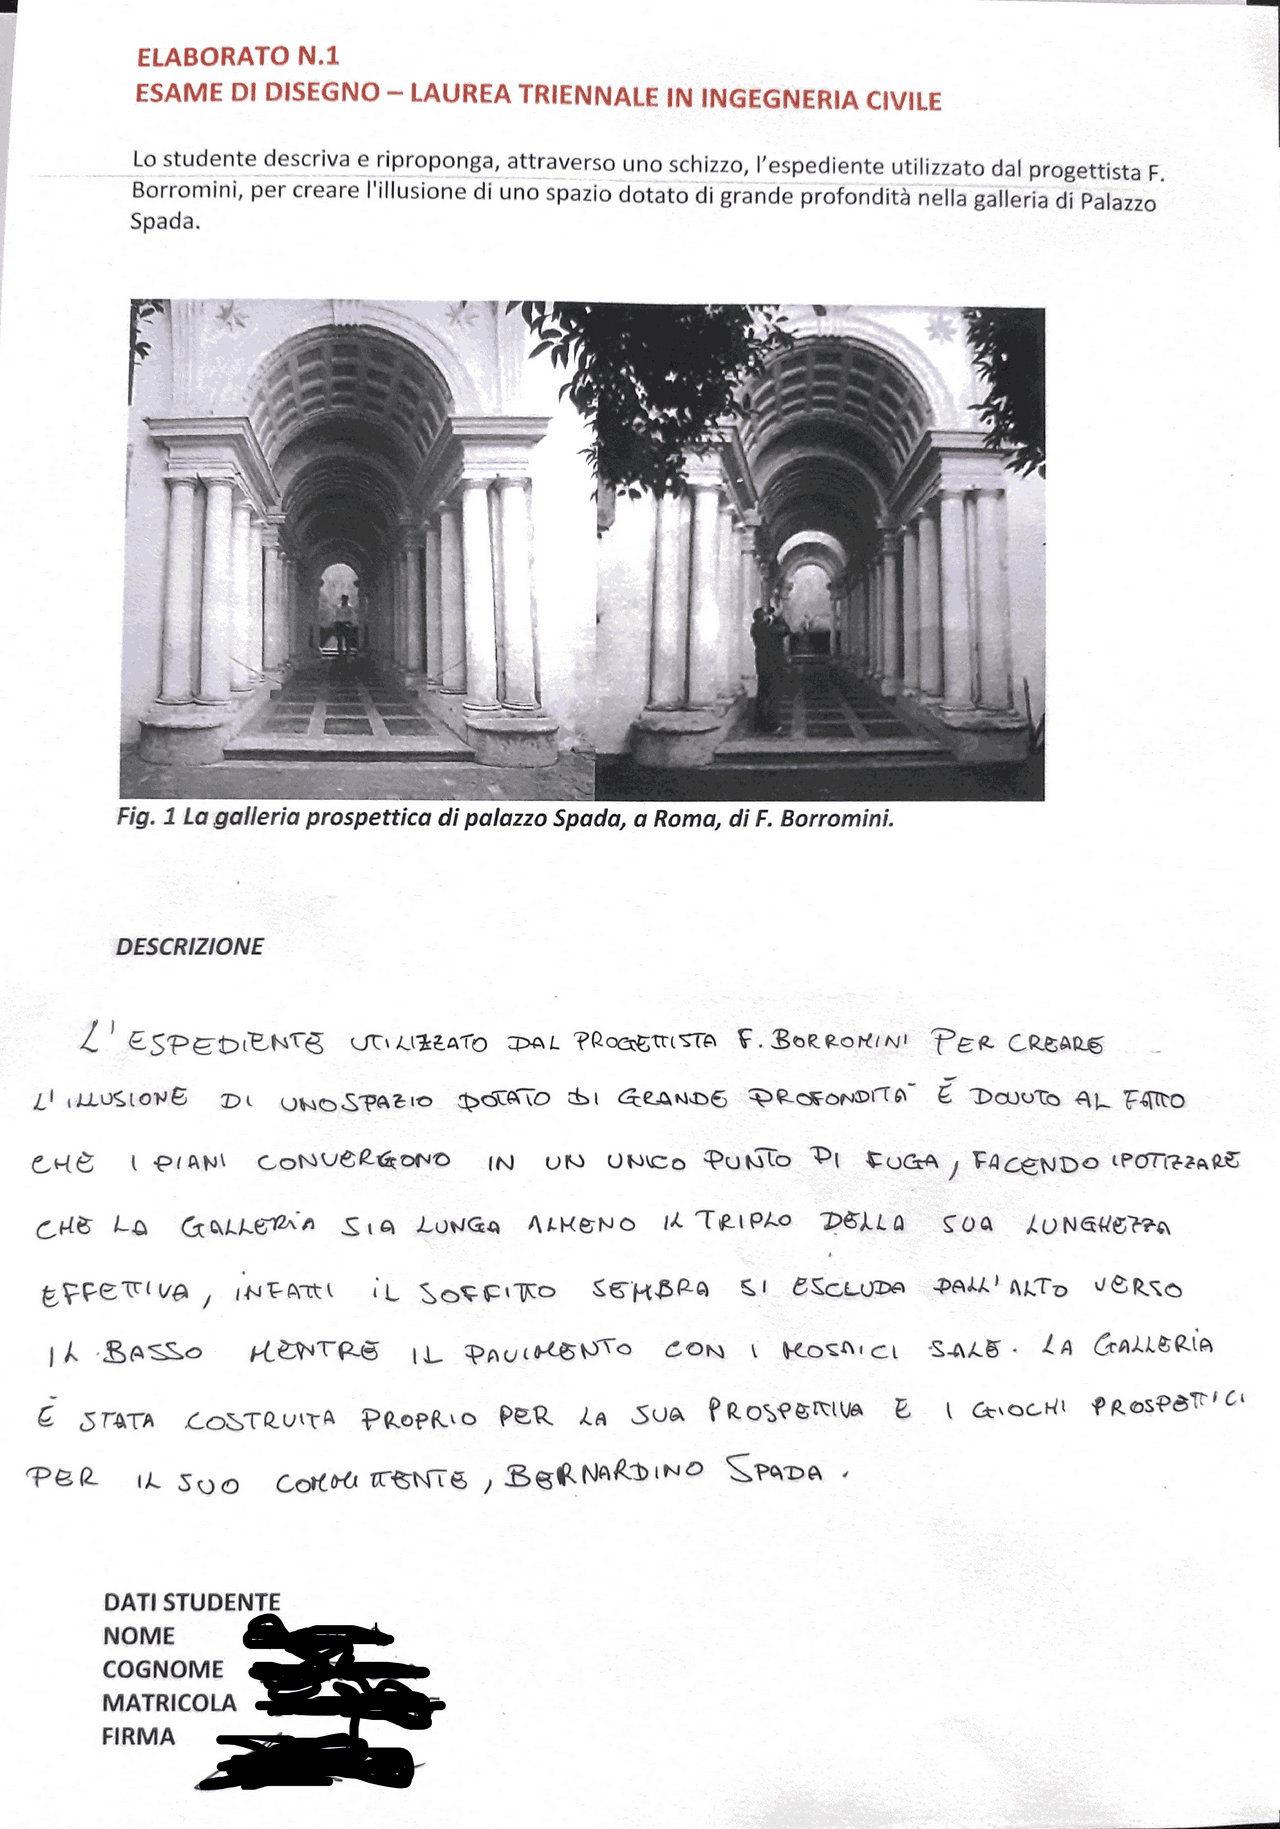 ELABORATO N.1
ESAME DI DISEGNO – LAUREA TRIENNALE IN INGEGNERIA CIVILE
Lo studente descriva e riproponga, attraverso uno schizzo, l'espediente utilizzato dal progettista F.
Borromini, per creare l'illusione di uno spazio dotato di grande profondità nella galleria di Palazzo
Spada.
Fig. 1 La galleria prospettica di palazzo Spada, a Roma, di F. Borromini.
DESCRIZIONE
L'ESPEDIENTE UTILIZZATO DAL PROGETTISTA F. BORROMINI PER CREARE
L'ILLUSIONE DI UNO SPAZIO DOTATO DI GRANDE PROFONDITÀ È DOVUTO AL FATTO
CHE I PIANI CONVERGONO IN UN UNICO PUNTO DI FUGA, FACENDO IPOTIZZARE
CHE LA GALLERIA SIA LUNGA ALMENO IL TRIPLO DELLA SUA LUNGHEZZA
EFFETTIVA, INFATTI IL SOFFITTO SEMBRA SI ESCLUDA DALL'ALTO VERSO
IL BASSO MENTRE IL PAVIMENTO CON I MOSAICI SALE. LA GALLERIA
È STATA COSTRUITA PROPRIO PER LA SUA PROSPETTIVA E I GIOCHI PROSPETTICI
PER IL SUO COMMITTENTE, BERNARDINO SPADA.
DATI STUDENTE
NOME
COGNOME
MATRICOLA
FIRMA